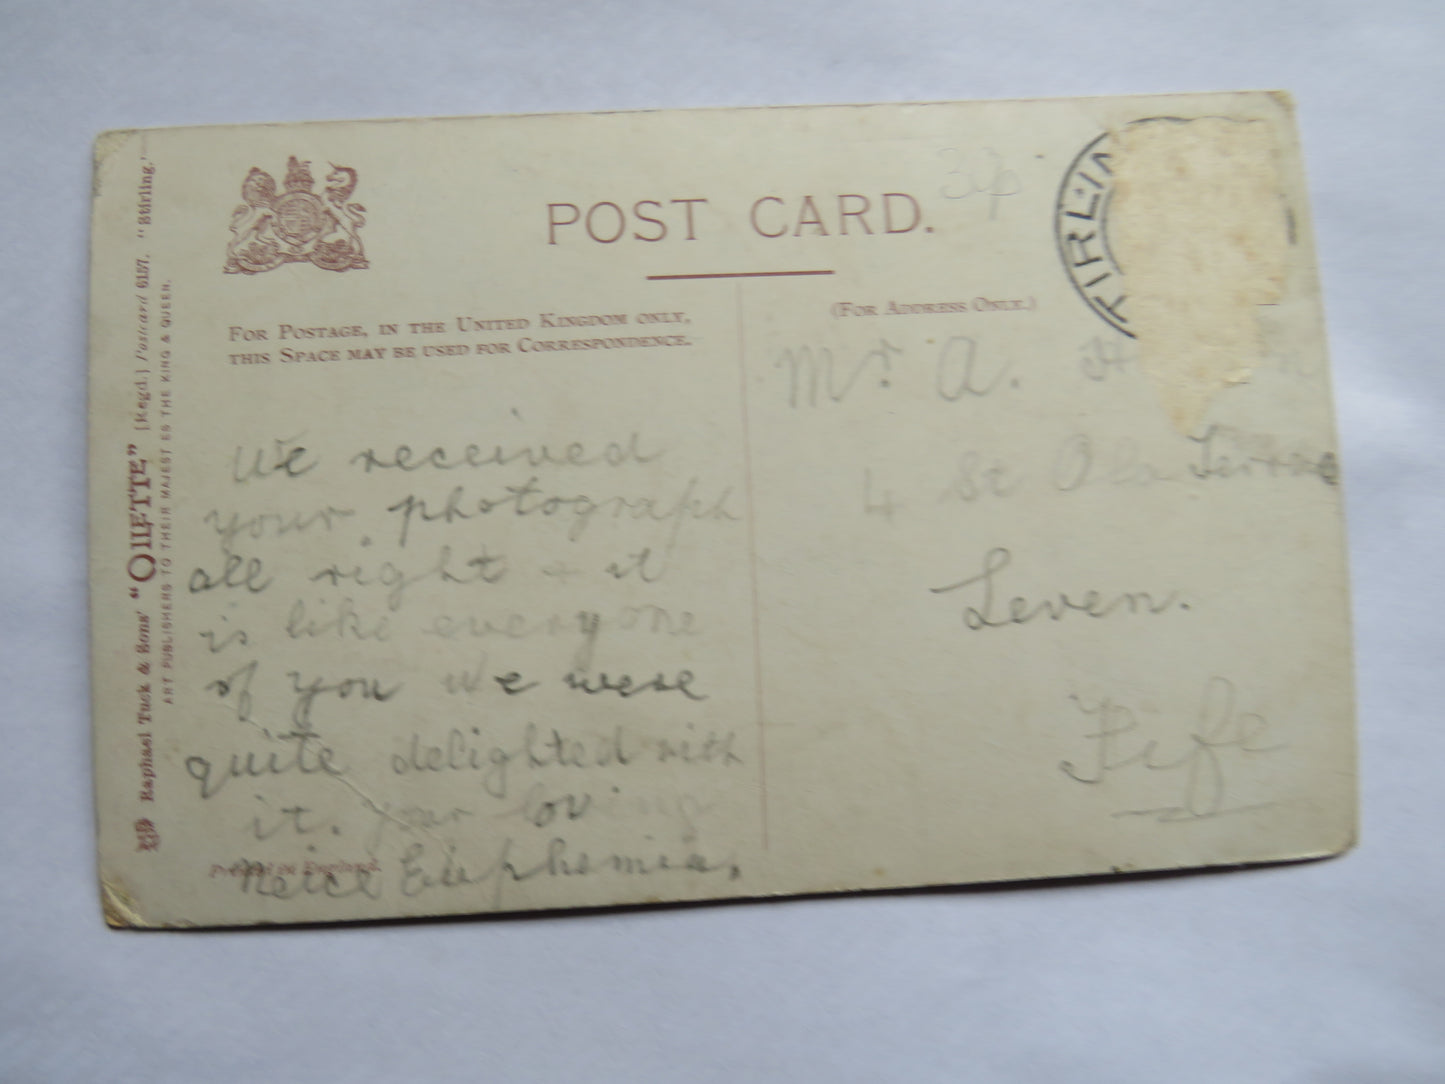 POST CARD.
30p
STIRLIN
FOR POSTAGE, IN THE UNITED KINGDOM ONLY,
THIS SPACE MAY BE USED FOR CORRESPONDENCE.
(FOR ADDRESS ONLY.)
We received
your photograph
all right + it
is like everyone
of you We were
quite delighted with
it. your loving
neice Euphemia.
Printed in England.
Mr. A.
4 St Terrace
Leven.
Fife
Raphael Tuck & Sons' "OILETTE" [Regd.] Postcard 6157. "Stirling."
ART PUBLISHERS TO THEIR MAJESTIES THE KING & QUEEN.